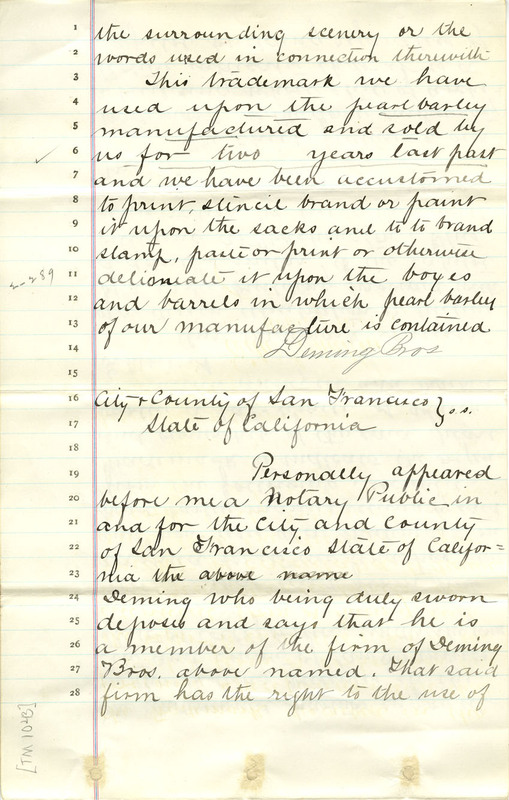 1 the surrounding scenery or the
2 words used in connection therewith
3 This trademark we have
4 used upon the pearl barley
5 manufactured and sold by
6 us for two years last past
7 and we have been accustomed
8 to print, stencil brand or paint
9 it upon the sacks and to to brand
10 stamp, paste or print or otherwise
2-289
11 delioniate it upon the boxes
12 and barrels in which pearl barley
13 of our manufacture is contained.
14 Deming Bros
15
16 City & County of San Francisco } s.s.
17 State of California
18
19 Personally appeared
20 before me a Notary Public in
21 and for the City and County
22 of San Francisco State of Califor=
23 nia the above name
24 Deming who being duly sworn
25 deposes and says that he is
26 a member of the firm of Deming
27 Bros. above named. That said
28 firm has the right to the use of